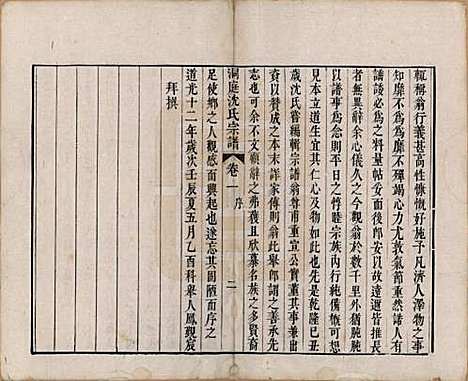 輒稱翁行義甚高性慷慨好施予凡濟人澤物之事
知靡不為靡不殫竭心力尤敦氣節重然諾人
諉諉必為之料量帖妥而後即安以故遠邇皆推長
者無異辭余心儀久之今觀翁於數千里外猶脁脁
以譜事為念則平日之惇睦宗族內行純備慨可想
見本立道生宜其仁心及物如此也先是乾隆已
歲沈氏嘗編輯宗譜翁尊甫重宣公實董其事兼出
資以贊成之本末詳家傳則翁此舉即謂之善承先
志也可余不文顧辭之弗獲且欣慕名族之多賢裔
洞庭沈氏宗譜 卷一 序 二
足使鄉之人觀感而興起也遂忘其固陋而序之
道光十二年歲次壬辰夏五月乙酉科舉人周觀宸
拜撰